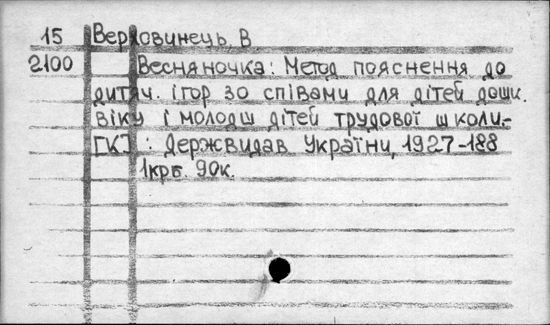 15 Верховинець, В
2100 Весняночка: Метод пояснення до
дитяч. ігор зо співами для дітей дошк.
віку і молодш дітей трудової школи,-
[К] : Держвидав України, 1927-188
1крб. 90к.